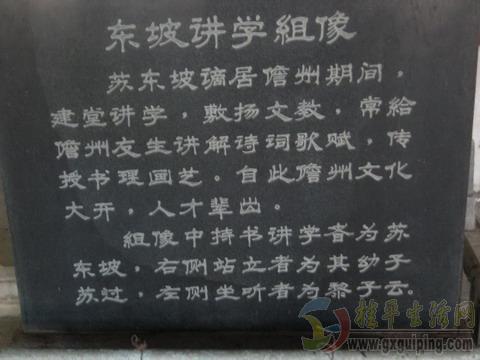 东坡讲学組像
苏东坡谪居儋州期间，
建堂讲学，敷扬文教，常給
儋州友生讲解诗词歌赋，传
授书理画艺。自此儋州文化
大开，人才辈出。
組像中持书讲学者为苏
东坡，右侧站立者为其幼子
苏过，左侧坐听者为黎子云。
桂平生活网
www.gxguiping.com